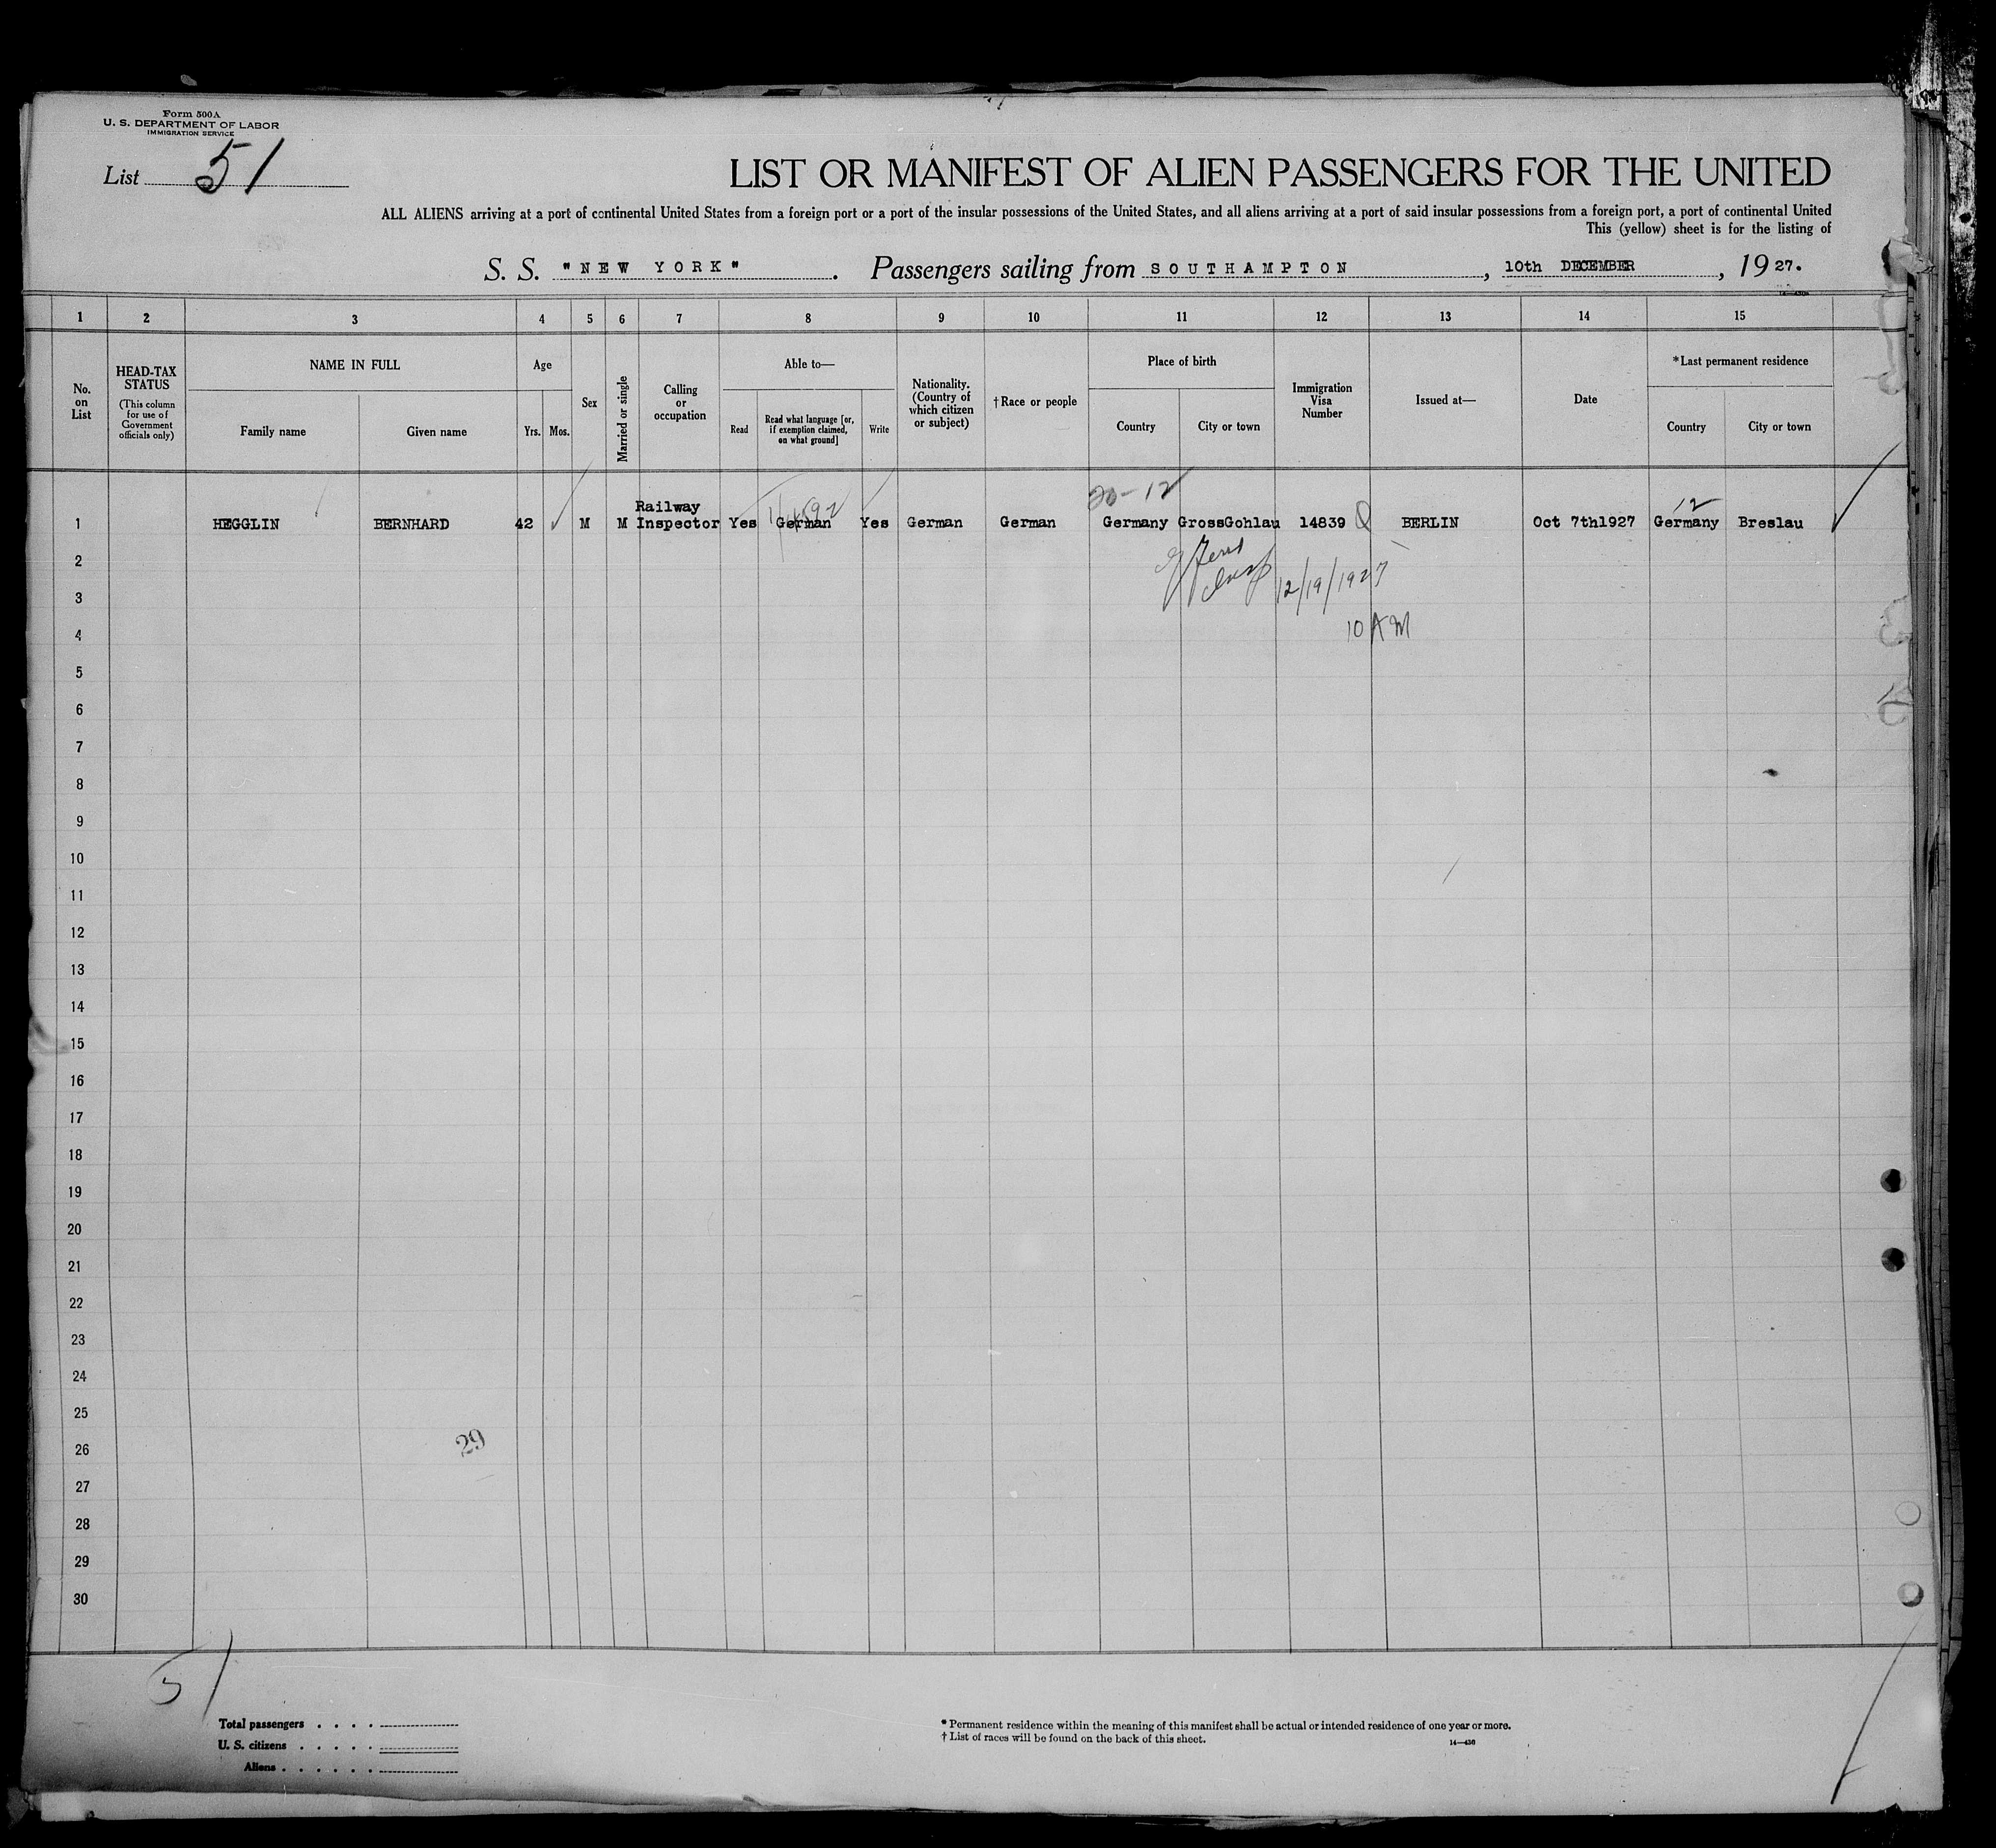 Form 500A
U. S. DEPARTMENT OF LABOR
IMMIGRATION SERVICE
List 51
LIST OR MANIFEST OF ALIEN PASSENGERS FOR THE UNITED
ALL ALIENS arriving at a port of continental United States from a foreign port or a port of the insular possessions of the United States, and all aliens arriving at a port of said insular possessions from a foreign port, a port of continental United
This (yellow) sheet is for the listing of
S. S. "NEW YORK". Passengers sailing from SOUTHAMPTON, 10th DECEMBER, 1927.
1 2 3 4 5 6 7 8 9 10 11 12 13 14 15
No. on List
HEAD-TAX STATUS
(This column for use of Government officials only)
NAME IN FULL
Family name
Given name
Age
Yrs.
Mos.
Sex
Married or single
Calling or occupation
Able to—
Read
Read what language [or, if exemption claimed, on what ground]
Write
Nationality. (Country of which citizen or subject)
†Race or people
Place of birth
Country
City or town
Immigration Visa Number
Issued at—
Date
*Last permanent residence
Country
City or town
20-12
12
1 HEGGLIN BERNHARD 42 M M Railway Inspector Yes German Yes German German Germany GrossGohlau 14839 BERLIN Oct 7th1927 Germany Breslau
2
3
12/19/1927
4
10 AM
5
6
7
8
9
10
11
12
13
14
15
16
17
18
19
20
21
22
23
24
25
26
29
27
28
29
30
51
Total passengers . . . .
U. S. citizens . . . . .
Aliens . . . . . .
* Permanent residence within the meaning of this manifest shall be actual or intended residence of one year or more.
† List of races will be found on the back of this sheet.
14—430